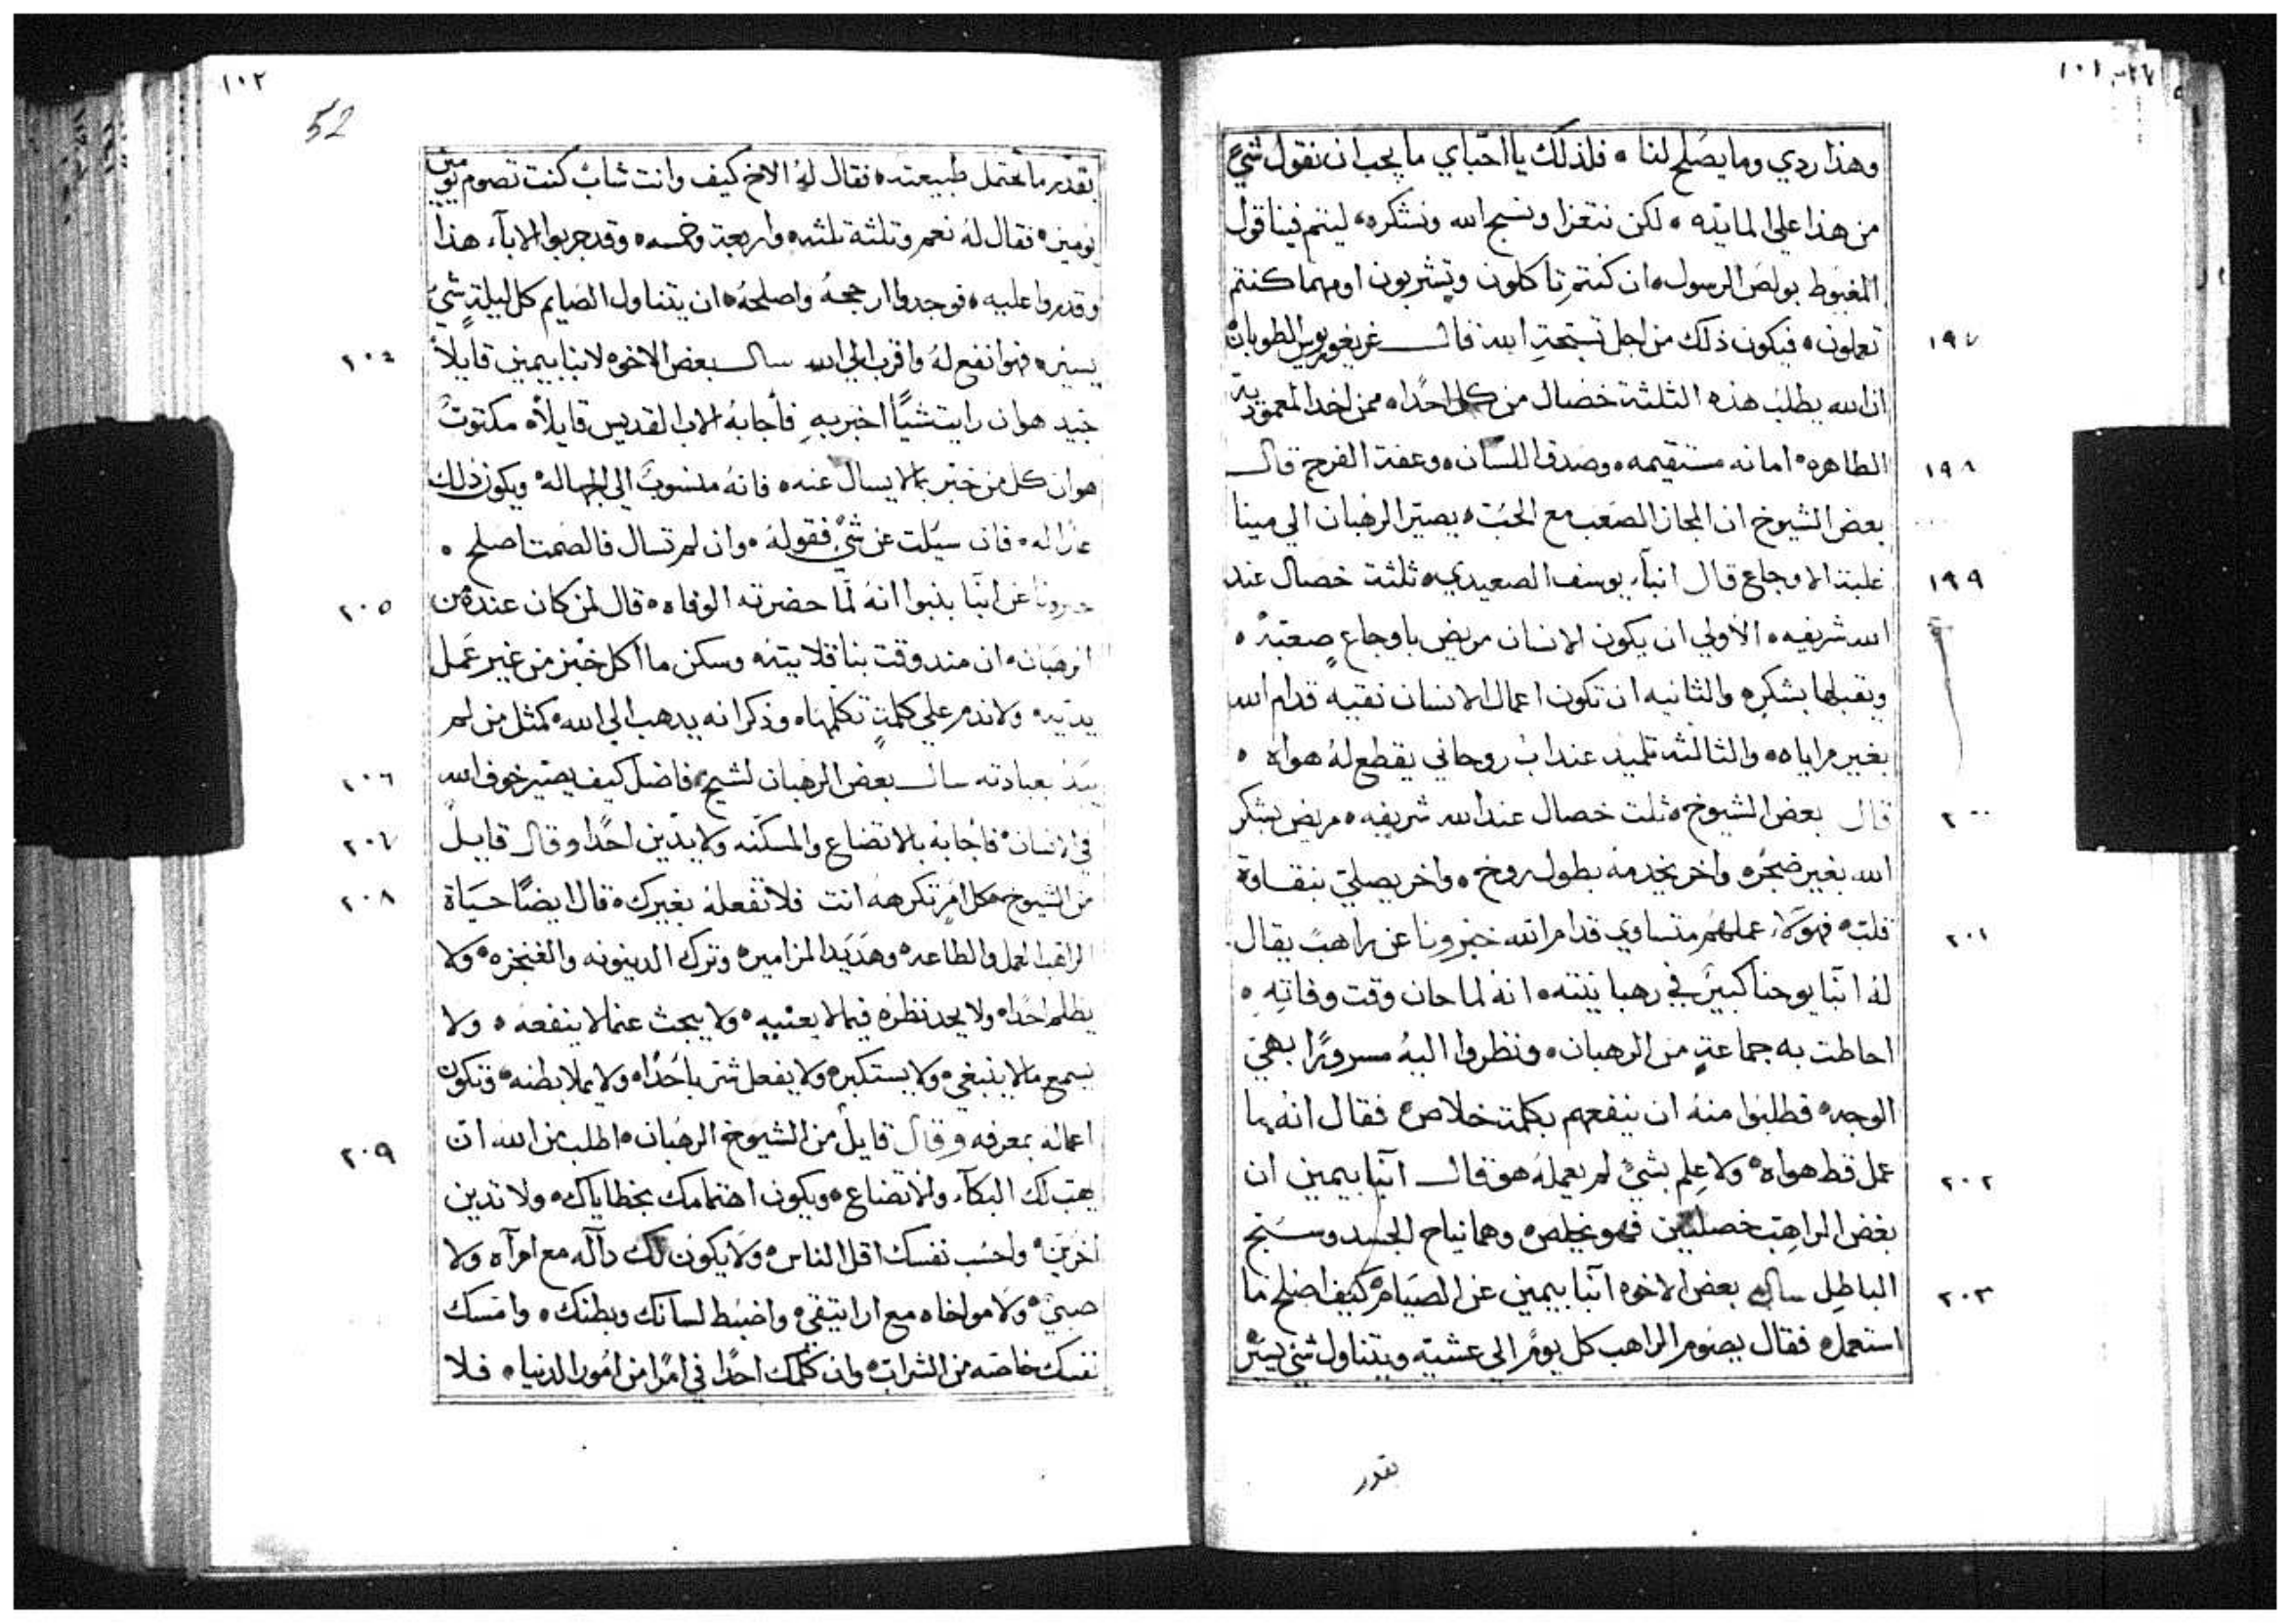 ١٠١
وهذا ردي وما يصلح لنا ه فلذلك يا احبّاي ما يجب ان نقول شيً
من هذا علي المايده ه لكن نتعزا ونسبح الله ونشكره، ليتم فينا قول
المغبوط بولص الرسول ه ان كنتم تاكلون وتشربون او مهما كنتم
تعملون ه فيكون ذلك من اجل تسبحة الله قال غريغوريوس الطوبان
١٩٧
ان الله يطلب هذه الثلثة خصال من كل احدًا ه ممن اخد المعموديه
الطاهره ه امانه مستقيمه ه وصدق اللسان ه وعفة الفرج قال
١٩٨
بعض الشيوخ ان المجاز الصعب مع الحب ه يصيّر الرهبان الي مينا
غلبة الاوجاع قال انبآ يوسف الصعيدي ه ثلثة خصال عند
١٩٩
الله شريفه ه الأولي ان يكون الانسان مريض باوجاعٍ صعبةٍ ه
ويقبلها بشكرٍ ه والثانيه ان تكون اعمال الانسان نقيه قدام الله
بغير مراياه ه والثالثه تلميد عند ابٌ روحاني يقطع له هواه ه
قال بعض الشيوخ ه ثلت خصال عند الله شريفه ه مريض يشكر
٢٠٠
الله بغير ضجر ه واخر يخدمه بطول روح ه واخر يصلي بنقاوة
قلب ه فهولآء عملهم متساوي قدام الله خبرونا عن راهبٍ يقال
٢٠١
له انبا يوحنا كبيرً في رهبانيته ه انه لما حان وقت وفاته ه
احاطت به جماعةٍ من الرهبان ه ونظروا اليه مسرورًا بهي
الوجه ه فطلبوا منه ان ينفعهم بكلمة خلاص ه فقال انه ما
عمل قط هواه ه ولا علم بشيً لم يعمله هو قال انبا بيمين ان
٢٠٢
بغض الراهب خصلتين فهو يخلص ه وهما نياح الجسد وسبح
الباطل سال بعض الاخوه انبا بيمين عن الصيام ه كيف اصلح ما
٢٠٣
استعمله فقال يصوم الراهب كل يومً الي عشيه ويتناول شي يسير
بقدر
١٠٢
52
بقدر ما تحتمل طبيعته ه فقال له الاخ كيف وانت شاب كنت تصوم يومين
يومين ه فقال له نعم وتلثة تلثه ه واربعة وخمسه ه وقد جربوا الابآء هذا
وقدروا عليه ه فوجدوا ارجحه واصلحه ه ان يتناول الصايم كل ليلةٍ شيً
يسير ه فهو انفع له واقرب الي الله سال بعض الاخوه لانبا بيمين قايلاً
٢٠٤
جيد هو ان رايت شيًا اخبر به فأجابه الاب القديس قايلاً ه مكتوب
هو ان كل من خبر بما لا يسال عنه ه فانه منسوبً الي الجهاله ه ويكون ذلك
عارًا له ه فان سيلت عن شيً فقوله ه وان لم تسال فالصمت اصلح ه
خبرونا عن انبا بنبوا انه لمّا حضرته الوفاه ه قال لمن كان عنده من
٢٠٥
الرهبان ه ان مند وقت بنا قلايته وسكن ما اكل خبز من غير عمل
يديه ه ولا ندم علي كلمةٍ تكلمها ه وذكر انه يدهب الي الله ه كمثل من لم
يبد بعبادته سال بعض الرهبان لشيخ فاضل كيف يصير خوف الله
٢٠٦
في الانسان ه فأجابه بالاتضاع والمسكنه ولا يدين احدًا وقال قايل
٢٠٧
من الشيوخ ه كل امرٍ تكرهه انت فلا تفعله بغيرك ه قال ايضًا حياة
٢٠٨
الراهب العمل والطاعه ه وهديد المزامير ه وترك الدينونه والفنخره ه ولا
يظلم احدًا ه ولا يحد نظره فيما لا يعنيه ه ولا يبحث عما لا ينفعه ه ولا
يسمع ما لا ينبغي ه ولا يستكبر ه ولا يفعل شر باحدًا ه ولا يملا بطنه ه وتكون
اعماله بمعرفه وقال قايل من الشيوخ الرهبان ه اطلب من الله ان
٢٠٩
يهب لك البكآء والاتضاع ه ويكون اهتمامك بخطاياك ه ولا تدين
اخرين ه واحسب نفسك اقل الناس ه ولا يكون لك دآله مع امرآه ولا
صبي ه ولا مواخاه مع اراتيقي ه واضبط لسانك وبطنك ه وامسك
نفسك خاصه من الشراب ه وان كلمك احدًا في امرًا من امور الدنيا ه فلا